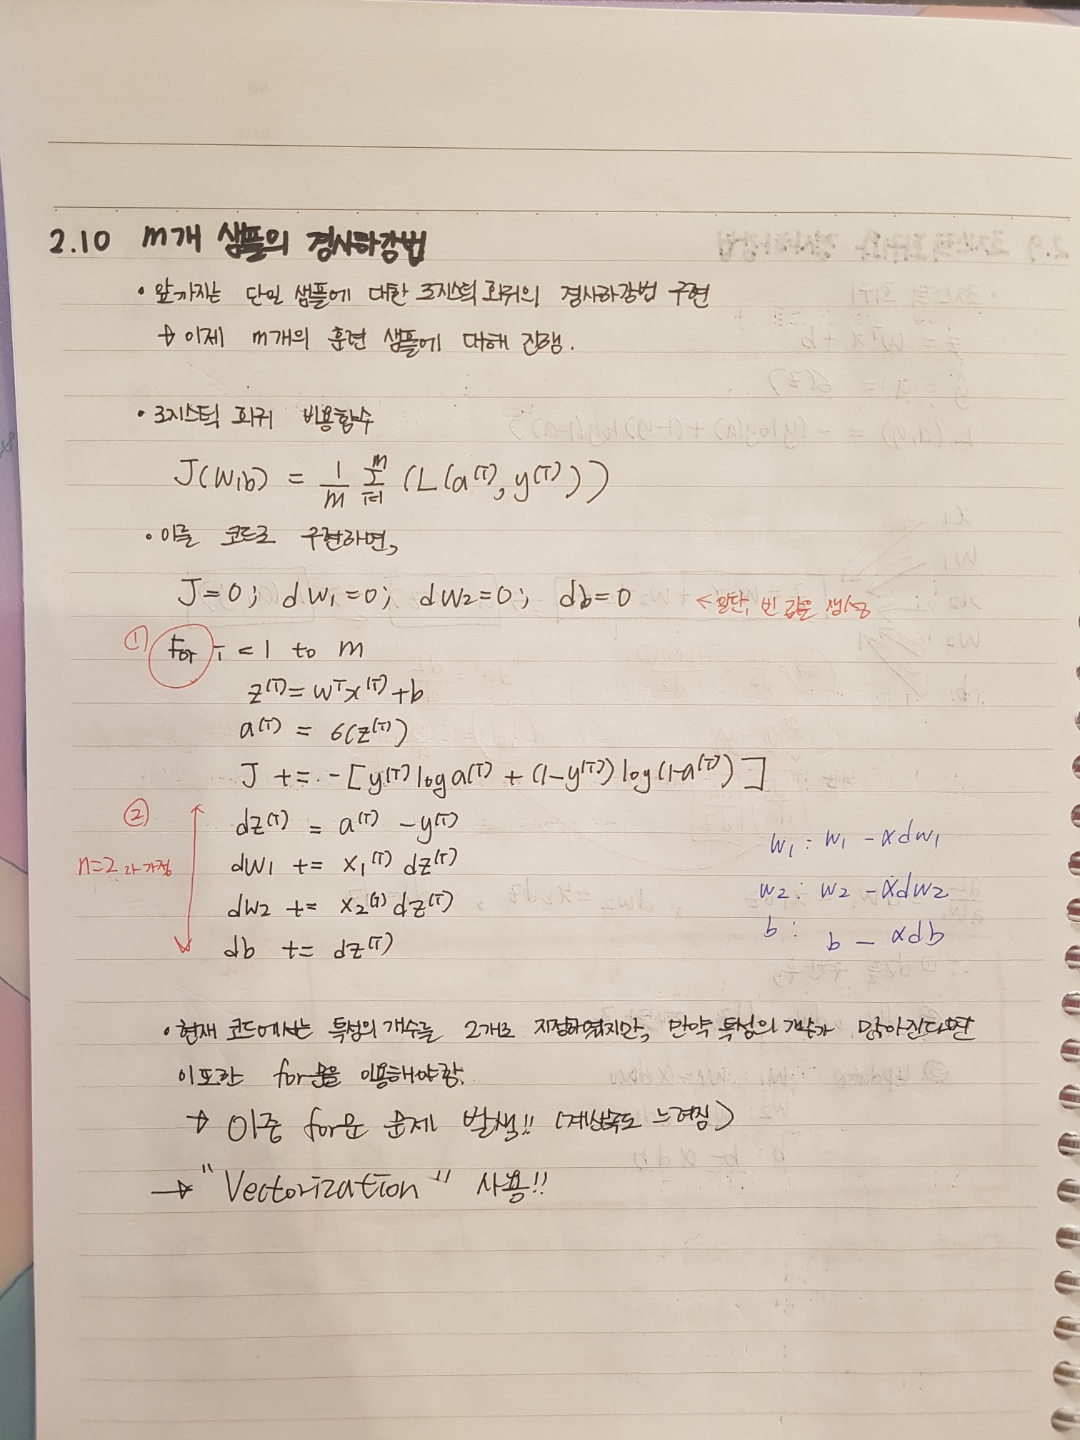 2.10 m개 샘플의 경사하강법
• 앞까지는 단일 샘플에 대한 로지스틱 회귀의 경사하강법 구현
→ 이제 m개의 훈련 샘플에 대해 진행.
• 로지스틱 회귀 비용함수
J(w,b) = 1/m Σ_{i=1}^{m} (L(a⁽ⁱ⁾, y⁽ⁱ⁾))
• 이를 코드로 구현하면,
J=0; dw₁=0; dw₂=0; db=0 ← 일단, 빈 값을 생성
① For i = 1 to m
z⁽ⁱ⁾ = wᵀx⁽ⁱ⁾+b
a⁽ⁱ⁾ = σ(z⁽ⁱ⁾)
J += -[y⁽ⁱ⁾ log a⁽ⁱ⁾ + (1-y⁽ⁱ⁾) log(1-a⁽ⁱ⁾)]
②
n=2 라 가정
dz⁽ⁱ⁾ = a⁽ⁱ⁾ - y⁽ⁱ⁾
dw₁ += x₁⁽ⁱ⁾ dz⁽ⁱ⁾
dw₂ += x₂⁽ⁱ⁾ dz⁽ⁱ⁾
db += dz⁽ⁱ⁾
w₁ : w₁ - αdw₁
w₂ : w₂ - αdw₂
b : b - αdb
• 현재 코드에서는 특성의 개수를 2개로 지정하였지만, 만약 특성의 개수가 많아진다면
이또한 for문을 이용해야함.
→ 이중 for문 문제 발생!! (계산속도 느려짐)
→ "Vectorization" 사용!!